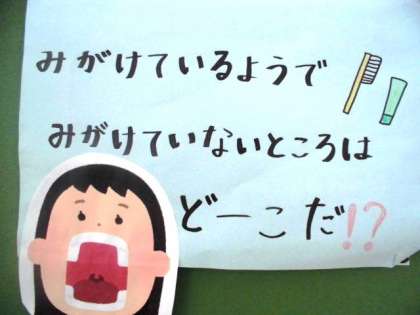 みがけているようで
みがけていないところは
どーこだ!?